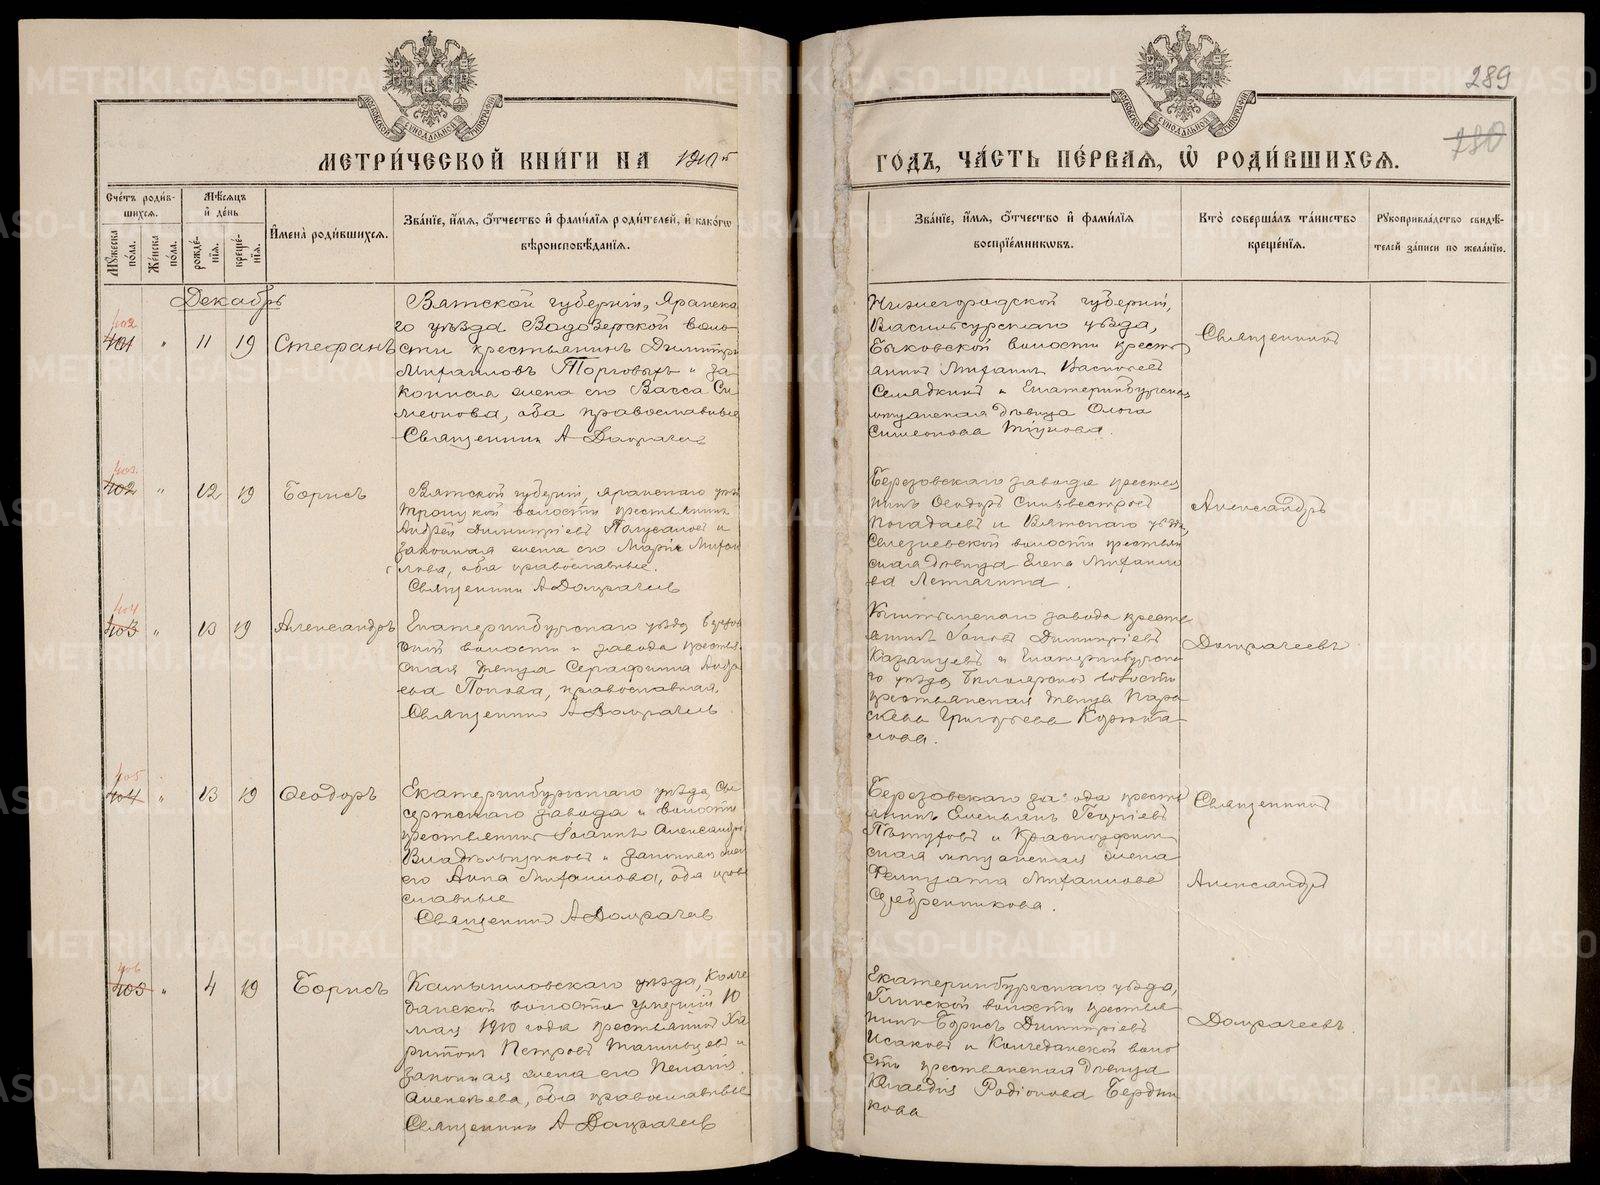 289
180
МЕТРИ́ЧЕСКОЙ КНИ́ГИ НА 1910й
ГО́ДЪ, ЧА́СТЬ ПЕ́РВАЯ, Ѡ҆ РОДИ́ВШИХСЯ.
Сче́тъ роди́в-
шихся.
Мꙋ́жеска по́ла.
Же́нска по́ла.
Мѣ́сяцъ
и҆ де́нь
рожде́-
нїя.
креще́-
нїя.
И҆мена̀ роди́вшихся.
Зва́нїе, и҆́мя, ѻ҆́тчество и҆ фами́лїя роди́телей, и҆ како́гѡ
вѣроисповѣ́данїя.
Зва́нїе, и҆́мя, ѻ҆́тчество и҆ фами́лїя
воспрїе́мникѡвъ.
Кто̀ соверша́лъ та́инство
креще́нїя.
Рꙋкоприкла́дство свидѣ́-
телей за́писи по жела́нїю.
Декабрь
402
401 " 11 19 Стефанъ
Вятской губерніи, Яранска-
го уѣзда Водозерской воло-
сти крестьянинъ Димитрій
Михаиловъ Торговыхъ и за-
конная жена его Васса Си-
меонова, оба православные
Священникъ А Домрачевъ
Нижегородской губерніи,
Васильсурскаго уѣзда,
Быковской волости кресть-
янинъ Михаилъ
и Екатеринбургская
мѣщанская дѣвица Олога
Симеонова Тіунова.
Священникъ
403
402 " 12 19 Борисъ
Вятской губерніи, Яранскаго уѣз
Троицкой волости крестьянинъ
Андрей Димитріевъ и
законная жена его Марія Михаи
лова, оба православные.
Священникъ А Домрачевъ
Березовскаго завода крестья
нинъ Ѳеодоръ Сильвестровъ
Погадаевъ и Вятскаго уѣзда,
Селезневской волости крестьян
ская дѣвица Елена Михаило
ва Летягина.
Александръ
404
403 " 13 19 Александръ
Екатеринбургскаго уѣзда Березов
ской волости и завода крестья
ская дѣвица Серафима Андре
ева Попова, православная.
Священникъ А Домрачевъ
Кыштымскаго завода кресть
янинъ Іаковъ Димитріевъ
Казанцевъ и Екатеринбургска
го уѣзда Белоярской волости
крестьянская дѣвица Пара
скева Григорьева
лова.
Домрачеевъ
405
404 " 13 19 Ѳеодоръ
Екатеринбургскаго уѣзда, Сы
сертскаго завода и волости
крестьянинъ Іоаннъ Александров
Владѣльщиковъ и законная жена
его Анна Михаилова, оба право
славные
Священникъ А Домрачевъ
Березовскаго завода кресть
янинъ Емельянъ Георгіевъ
Пѣтуховъ и Красноуфим
ская мѣщанская жена
Фелицата Михаилова
Серебренникова.
Священникъ
Александръ
406
405 " 4 19 Борисъ
Камышловскаго уѣзда, Колче
данской волости умершій 10
мая 1910 года крестьянинъ Ха
ритонъ Петровъ и
законная жена его Пелагія
Алексѣева, оба православные
Священникъ А Домрачевъ
Екатеринбургскаго уѣзда,
Глинской волости крестья
нинъ Борисъ Димитріевъ
Исаковъ и Колчеданской воло
сти крестьянская дѣвица
Клавдія Родіонова Бердни
кова
Домрачеевъ